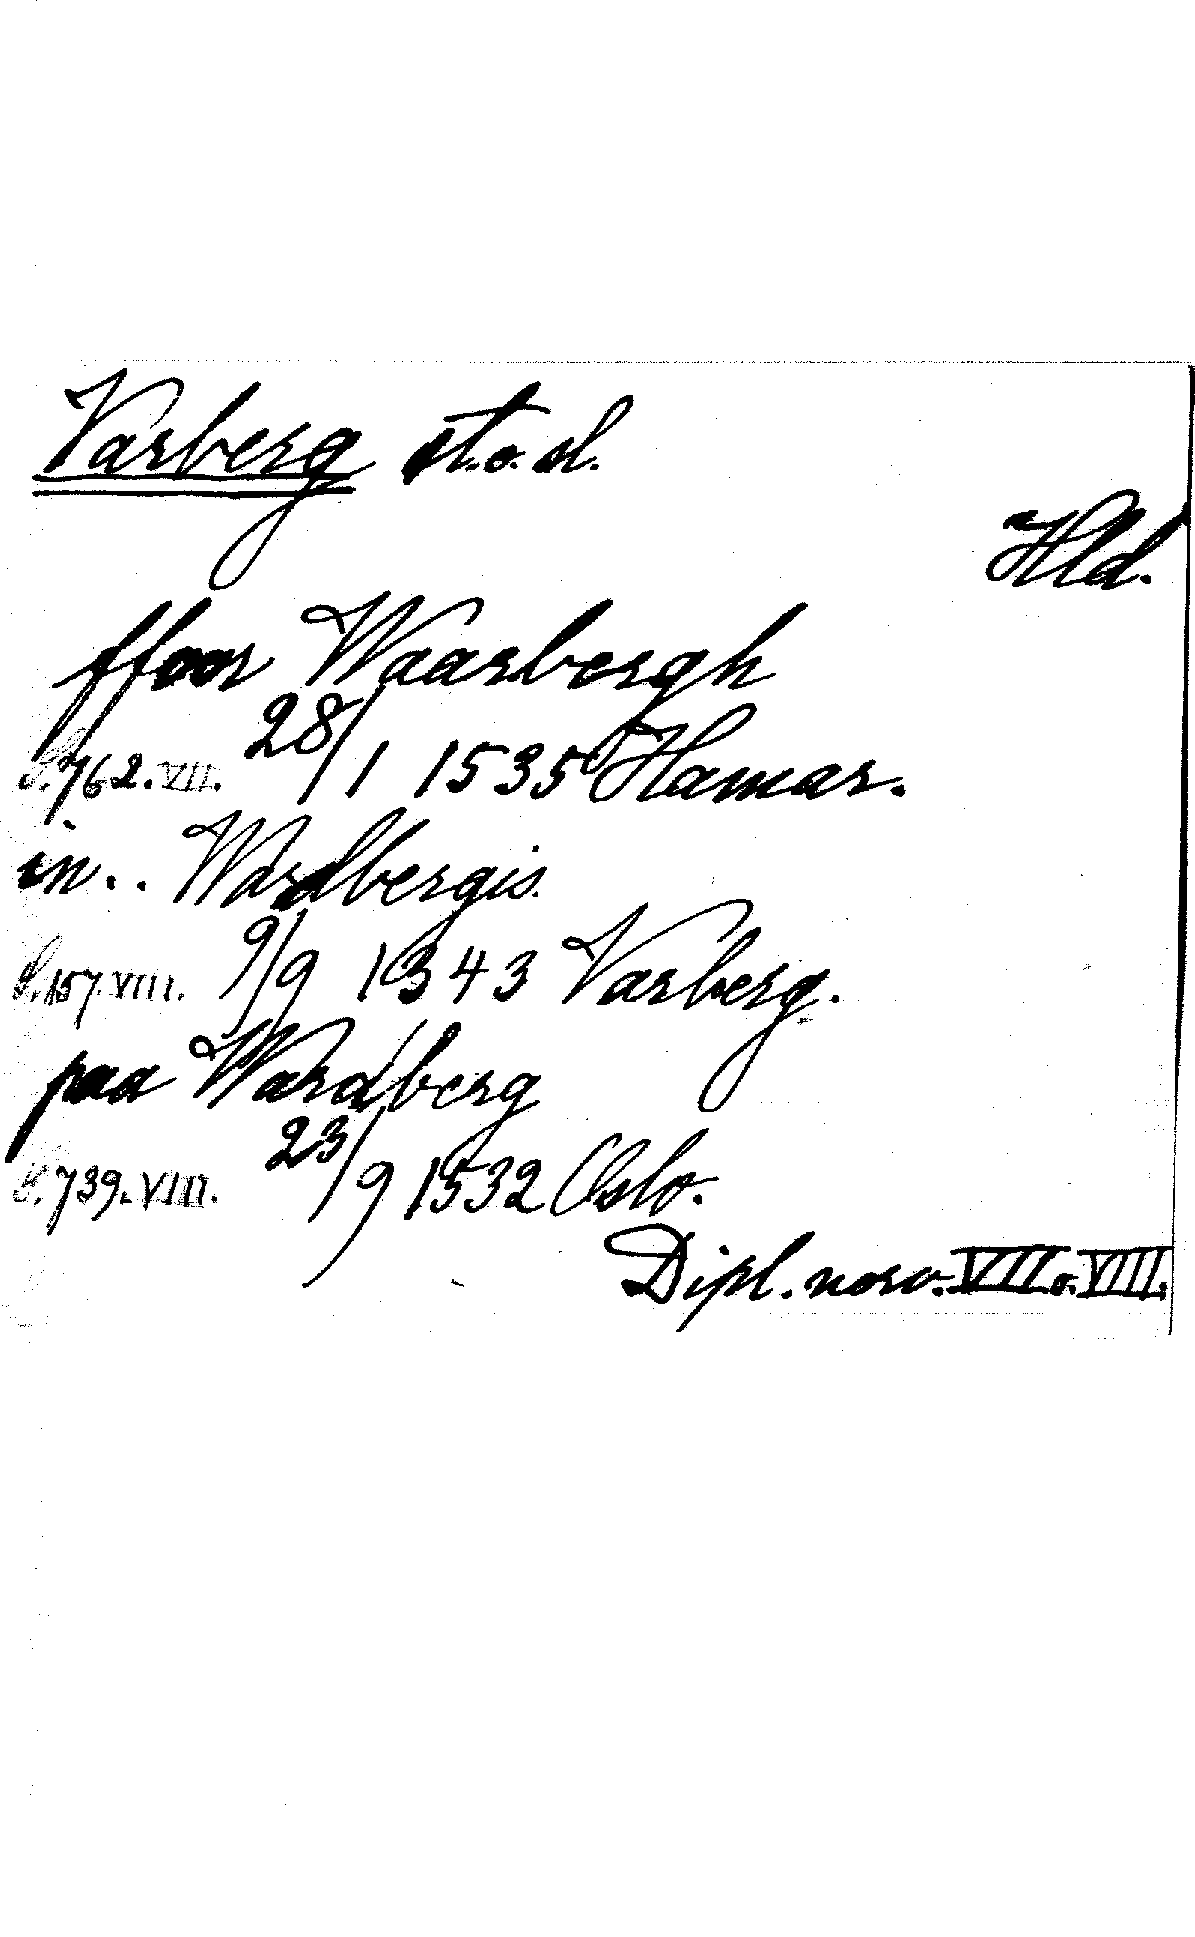 Varberg st. o. sl.
Hld.
ffoor Waarbergh
S. 762. VII. 28/1 1535 Hamar.
in . . Wardbergis.
S. 157. VIII. 9/9 1343 Varberg.
paa Wardberg
S. 739. VIII. 23/9 1532 Oslo.
Dipl. norv. VII o. VIII.